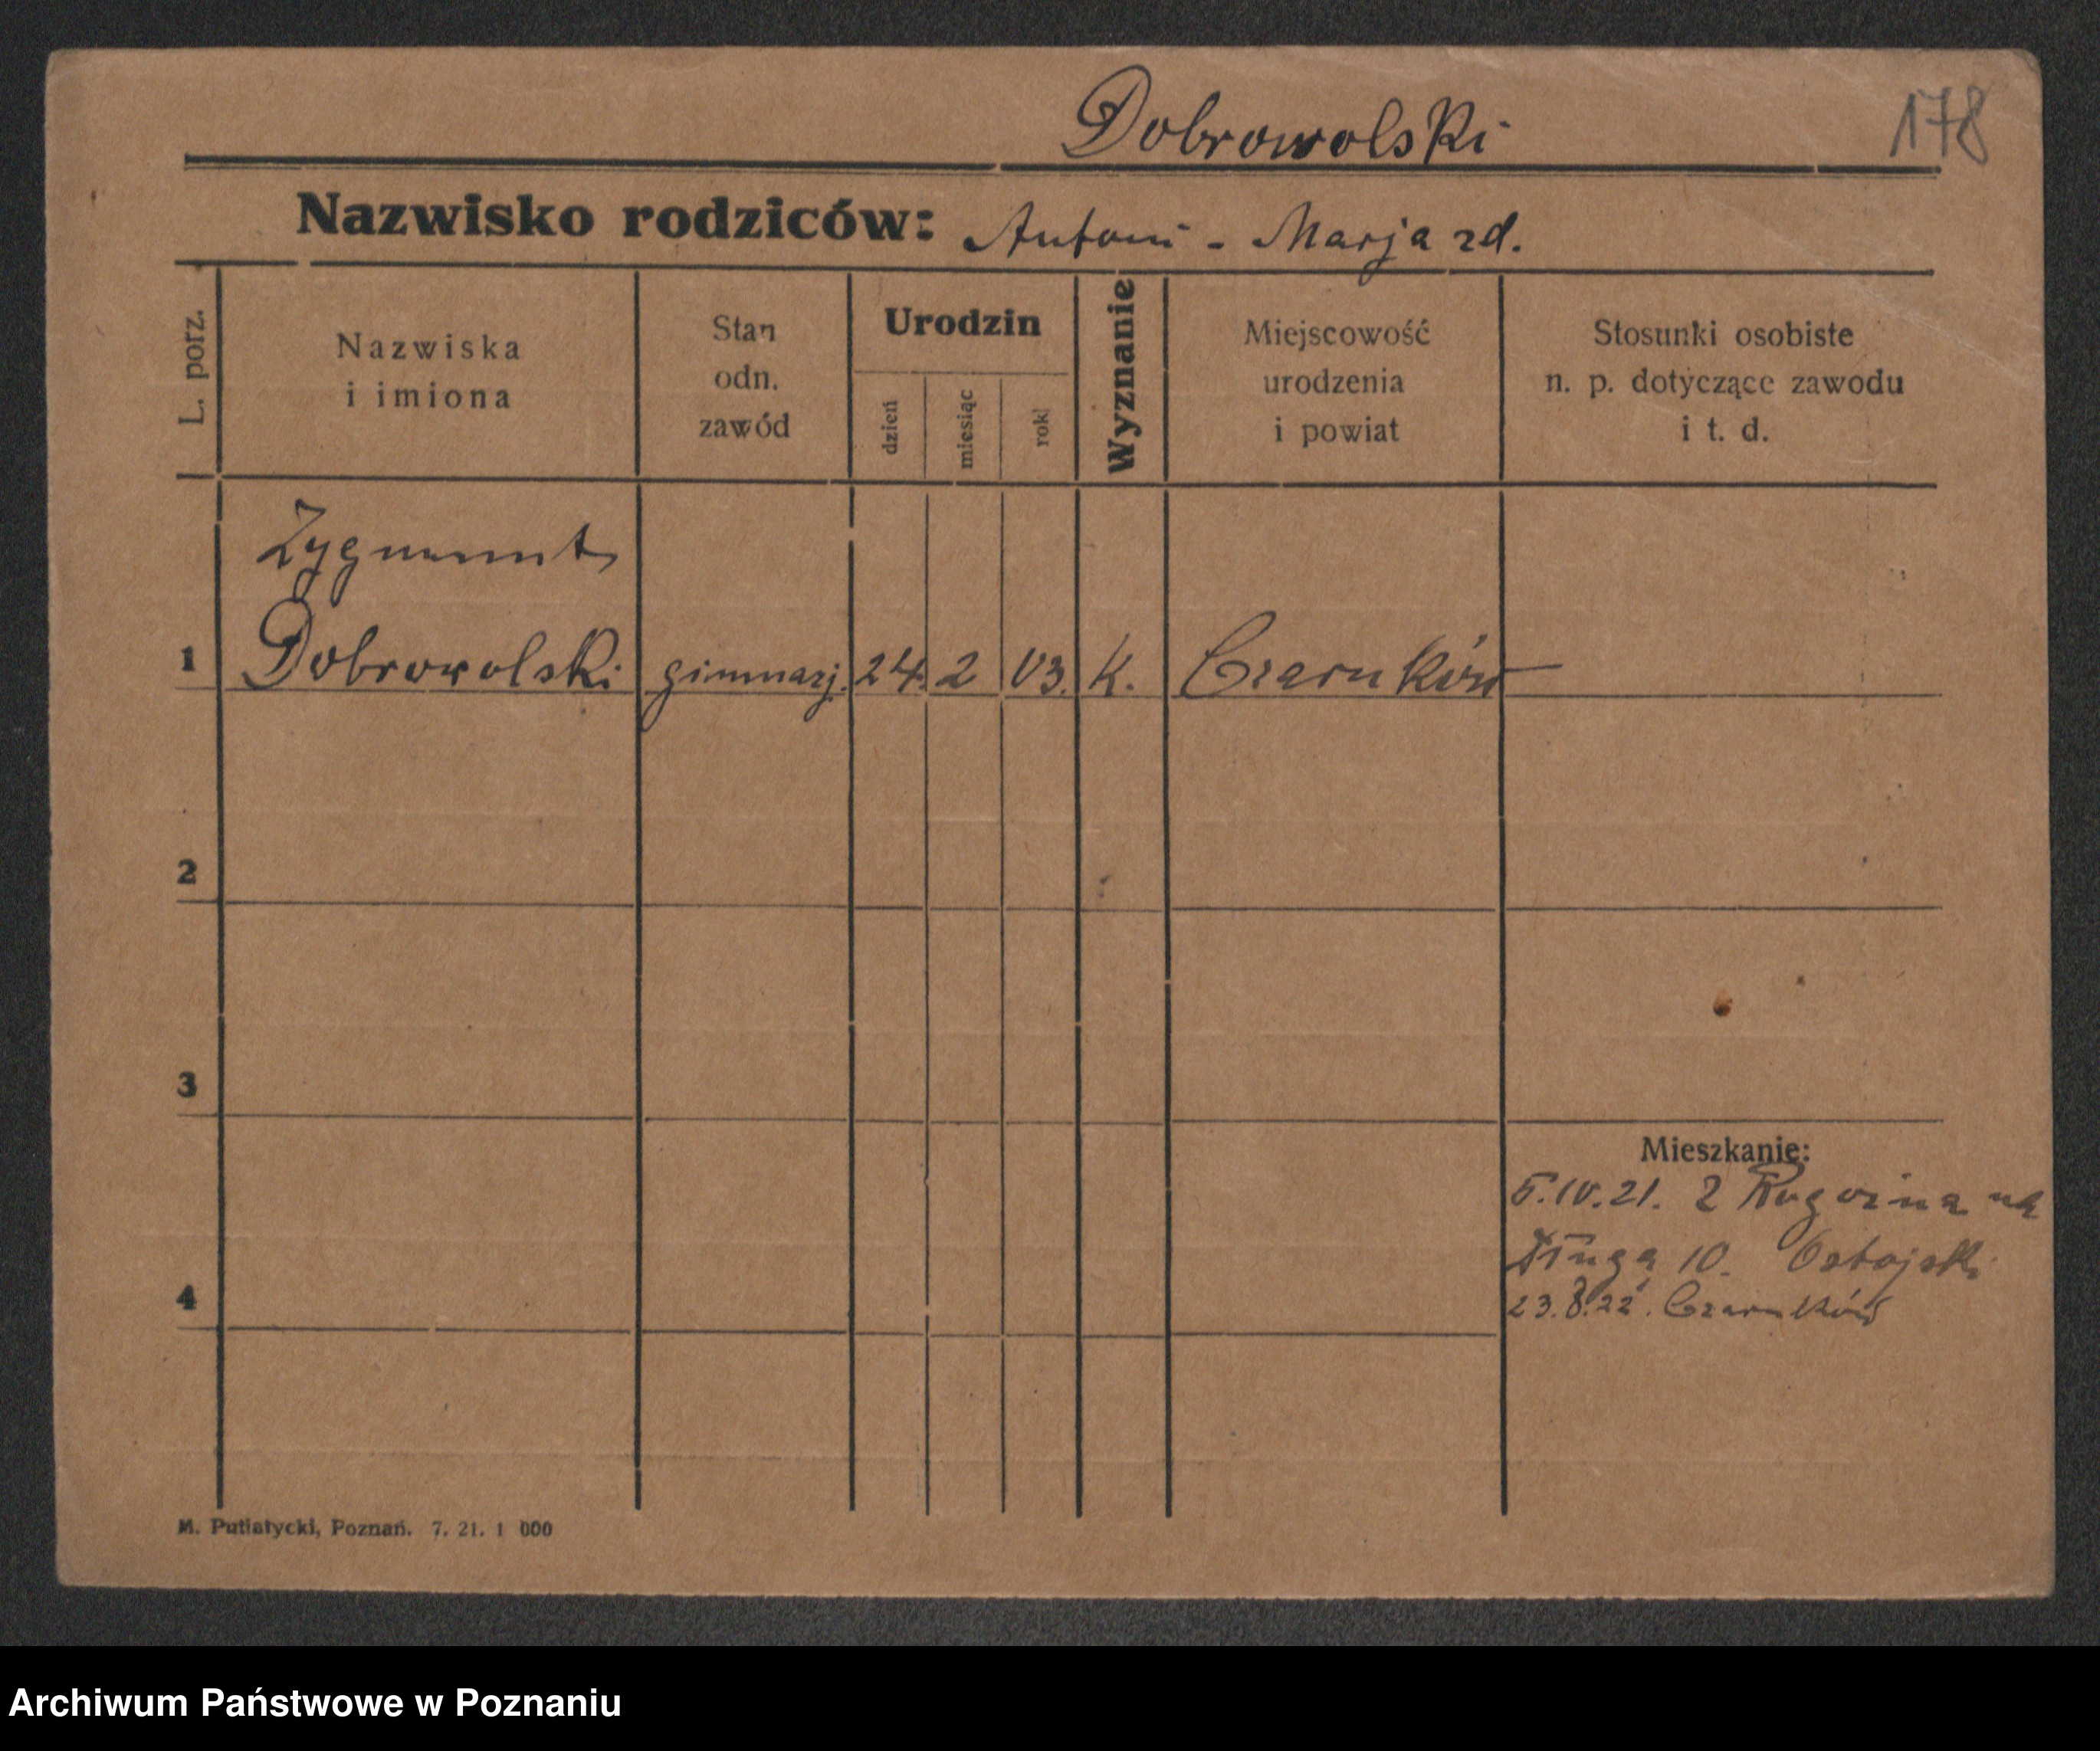 Dobrowolski
178
Nazwisko rodziców: Antoni - Marja zd.
L. porz.
Nazwiska
i imiona
Stan
odn.
zawód
Urodzin
dzień
miesiąc
rok
Wyznanie
Miejscowość
urodzenia
i powiat
Stosunki osobiste
n. p. dotyczące zawodu
i t. d.
Zygmunt
1 Dobrowolski gimnazj. 24. 2 03. k. Czarnków
2
3
4
Mieszkanie:
5.IV.21. z Rogoźna na
Długą 10.
23.8.22. Czarnków
M. Putiatycki, Poznań. 7. 21. 1 000
Archiwum Państwowe w Poznaniu